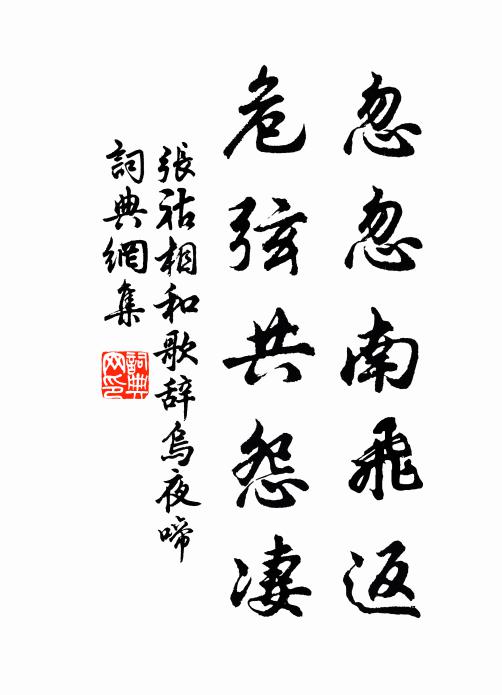 忽忽南飛返
危弦共怨淒
張祜相和歌辞烏夜啼
詞典網集
詞典網印